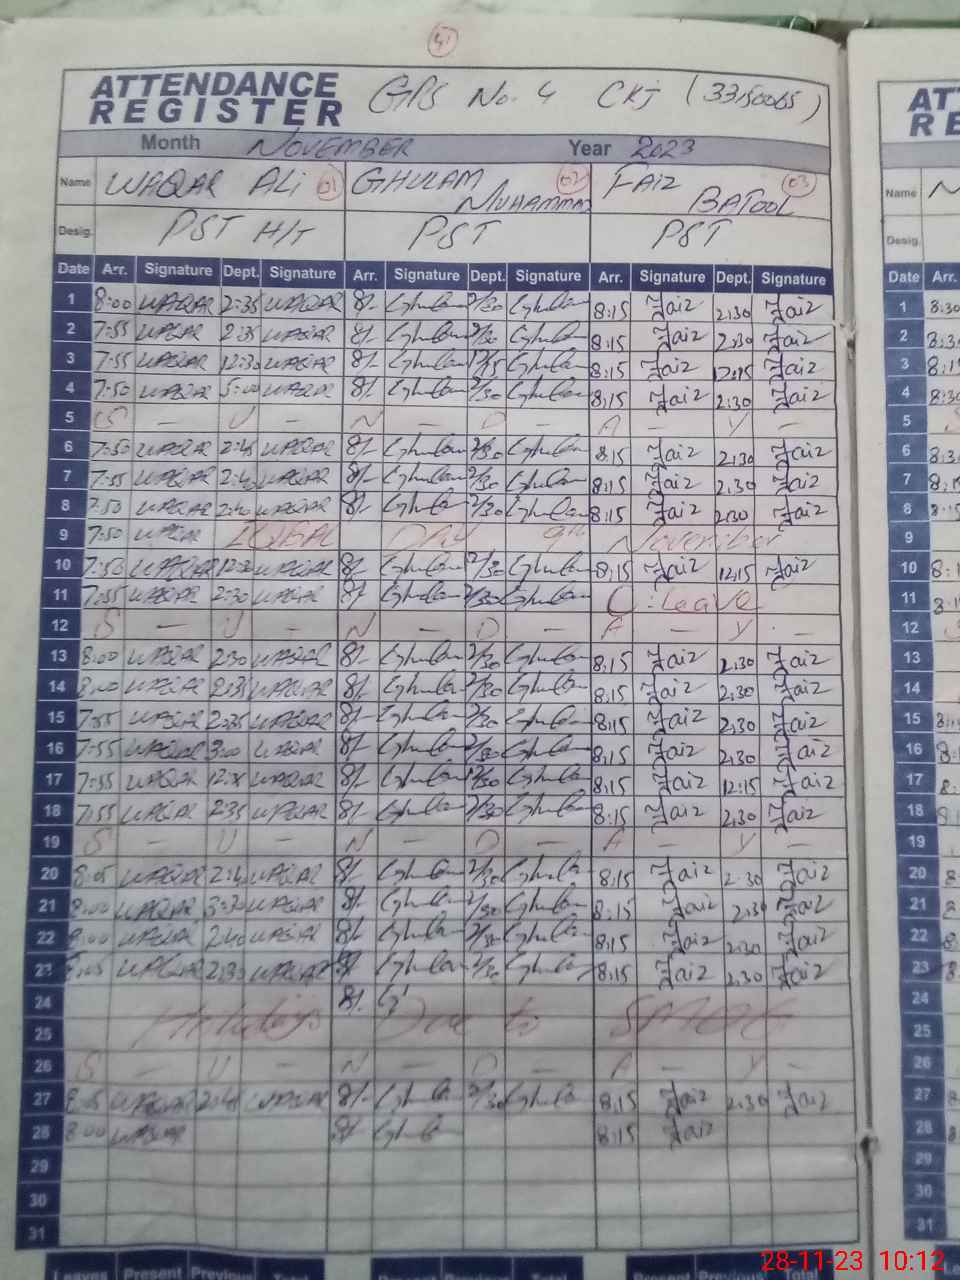 41
ATTENDANCE REGISTER GPS No. 4 CKJ (33150065)
Month NOVEMBER Year 2023
Name WAQAR ALi 01 GHULAM MUHAMMAD 02 FAIZ BATOOL 03
Desig. PST H/T PST PST
Date Arr. Signature Dept. Signature Arr. Signature Dept. Signature Arr. Signature Dept. Signature
1 8:00 WAQAR 2:35 WAQAR 8/- Ghulam 2/30 Ghulam 8:15 Faiz 2:30 Faiz
2 7:55 WAQAR 2:35 WAQAR 8/- Ghulam 2/30 Ghulam 8:15 Faiz 2:30 Faiz
3 7:55 WAQAR 12:30 WAQAR 8/- Ghulam Ghulam 8:15 Faiz 12:15 Faiz
4 7:50 WAQAR 5:00 WAQAR 8/- Ghulam 2/30 Ghulam 8:15 Faiz 2:30 Faiz
5 S - U - N - D - A - Y -
6 7:50 WAQAR 2:45 WAQAR 8/- Ghulam 2/30 Ghulam 8:15 Faiz 2:30 Faiz
7 7:55 WAQAR WAQAR 8/- Ghulam 2/30 Ghulam 8:15 Faiz 2:30 Faiz
8 7:50 WAQAR WAQAR 8/- Ghulam 2/30 Ghulam 8:15 Faiz 2:30 Faiz
9 7:50 WAQAR IQBAL DAY 9th November
10 7:50 WAQAR WAQAR 8/- Ghulam 12/30 Ghulam 8:15 Faiz 12:15 Faiz
11 7:55 WAQAR 2:30 WAQAR 8/- Ghulam 2/30 Ghulam C. Leave
12 S - U - N - D - A - Y -
13 8:00 WAQAR 2:30 WAQAR 8/- Ghulam 2/30 Ghulam 8:15 Faiz 2:30 Faiz
14 8:00 WAQAR 2:35 WAQAR 8/- Ghulam 2/30 Ghulam 8:15 Faiz 2:30 Faiz
15 7:55 WAQAR 2:35 WAQAR 8/- Ghulam 2/30 Ghulam 8:15 Faiz 2:30 Faiz
16 7:55 WAQAR 3:00 WAQAR 8/- Ghulam 2/30 Ghulam 8:15 Faiz 2:30 Faiz
17 7:55 WAQAR WAQAR 8/- Ghulam 12/30 Ghulam 8:15 Faiz 12:15 Faiz
18 7:55 WAQAR 2:35 WAQAR 8/- Ghulam 2/30 Ghulam 8:15 Faiz 2:30 Faiz
19 S - U - N - D - A - Y -
20 8:05 WAQAR WAQAR 8/- Ghulam 2/30 Ghulam 8:15 Faiz 2:30 Faiz
21 8:00 WAQAR 3:30 WAQAR 8/- Ghulam 2/30 Ghulam 8:15 Faiz 2:30 Faiz
22 8:00 WAQAR 2:40 WAQAR 8/- Ghulam 2/30 Ghulam 8:15 Faiz 2:30 Faiz
23 8:05 WAQAR 2:30 WAQAR 8/- Ghulam 2/30 Ghulam 8:15 Faiz 2:30 Faiz
24 8/- G
25 Holidays Due to SMOG
26 S - U - N - D - A - Y -
27 8:05 WAQAR 2:45 WAQAR 8/- Ghulam 2/30 Ghulam 8:15 Faiz 2:30 Faiz
28 8:00 WAQAR 8/- Ghulam 8:15 Faiz
29
30
31
Leaves Present Previous Total Present Previous Total Present
AT
RE
Name
Desig.
Date Arr.
1 8:30
2 8:30
3 8:15
4 8:30
5
6 8:30
7
8 8:15
9
10
11
12
13
14
15
16
17
18
19
20
21
22
23
24
25
26
27
28
29
30
31
28-11-23 10:12